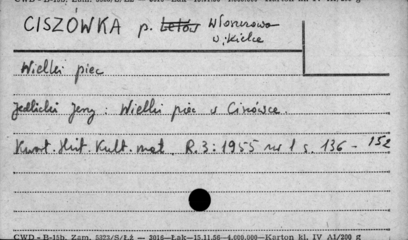 CISZÓWKA p. Włoszczowa
w. Kielce
Wielki piec
Jedlicki Jerzy: Wielki piec w Ciszówce.
Kwart. Hist. Kult. mat. R. 3: 1955 nr 1 s. 136 - 152
CWD - B-15b. Zam. 5323/S/Łż — 2016—Łak—15.11.50—4.000.000—Karton kl. IV A1/200 g